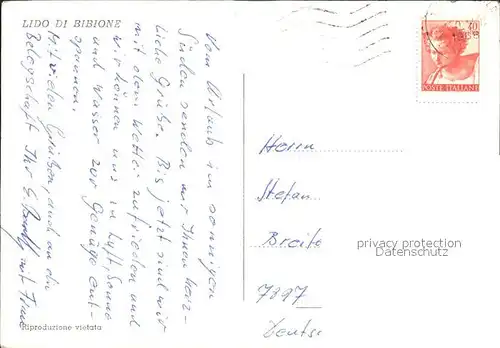 LIDO DI BIBIONE
Vom Urlaub im sonnigen
Süden senden wir Ihnen herz-
liche Grüße. Bis jetzt sind wir
mit dem Wetter zufrieden und
wir können uns in Luft, Sonne
und Wasser zur Genüge ent-
spannen.
Mit vielen Grüßen, auch an die
Belegschaft Ihr G. mit Frau
Riproduzione vietata
POSTE ITALIANE
Herrn
Stefan
Breite
privacy protection
Datenschutz
7897